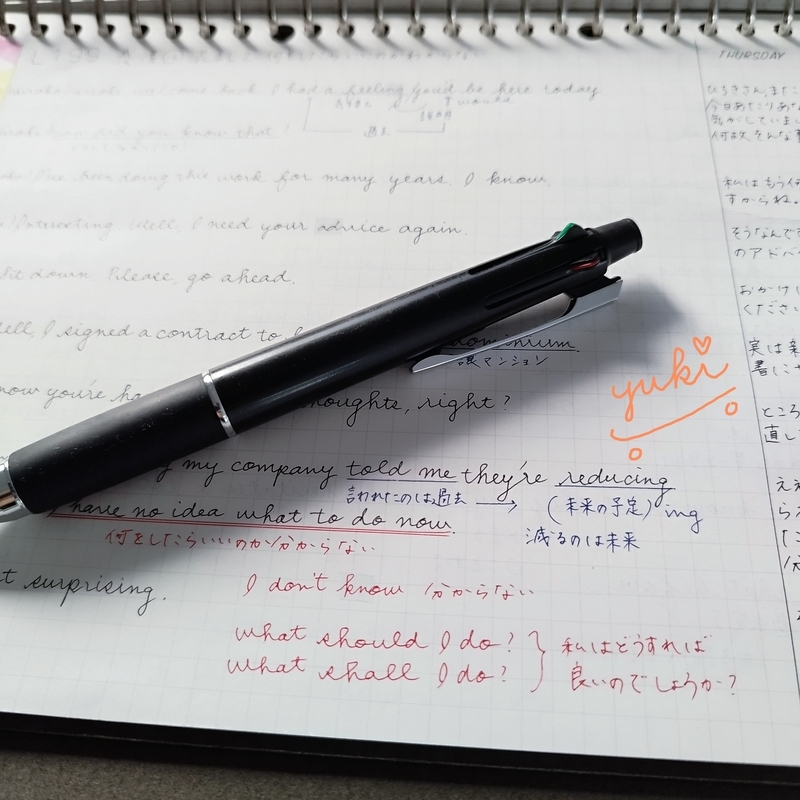 welcome back I had a feeling you'd be here today
過去
did you know that?
been doing this work for many years. I know.
Interesting. Well, I need your advice again.
sit down. Please, go ahead.
Well, I signed a contract to
dominium.
マンション
now you're ha
thoughts, right?
my company told me they're reducing
言われたのは過去 → (未来の予定) ing
have no idea what to do now.
減るのは未来
何をしたらいいのか分からない
t surprising.
I don't know 分からない
what should I do?
what shall I do?
私はどうすれば
良いのでしょうか?
yuki
THURSDAY
ひろきさん、また
今日あたりあな
気がしていまし
何故そんな事
私はもう何
すからね。
そうなんで
のアドバ
おかけ
ください
実は新
書にサ
ところ
直し